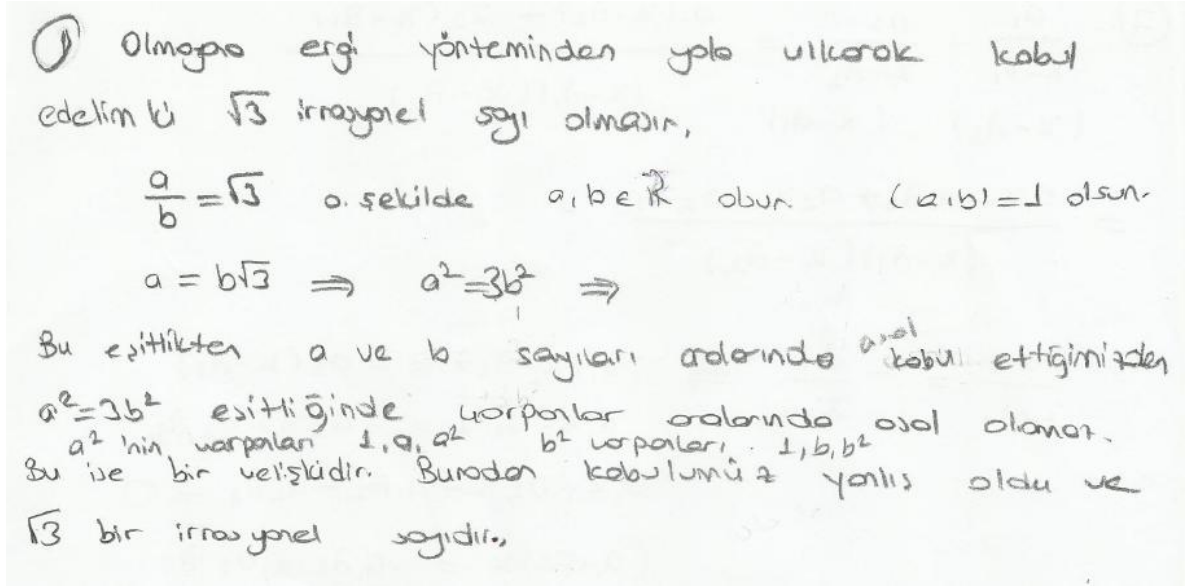 ① Olmayana ergi yönteminden yola çıkarak kabul
edelim ki √3 irrasyonel sayı olmasın,
a/b = √3 o. şekilde a, b ∈ R olsun (a,b) = 1 olsun.
a = b√3 ⇒ a² = 3b² ⇒
Bu eşitlikten a ve b sayıları aralarında asal kabul ettiğimizden
a² = 3b² eşitliğinde çarpanlar aralarında asal olamaz.
a²'nin çarpanları 1, a, a² b² çarpanları. 1, b, b²
Bu ise bir çelişkidir. Buradan kabulumüz yanlış oldu ve
√3 bir irrasyonel sayıdır.,